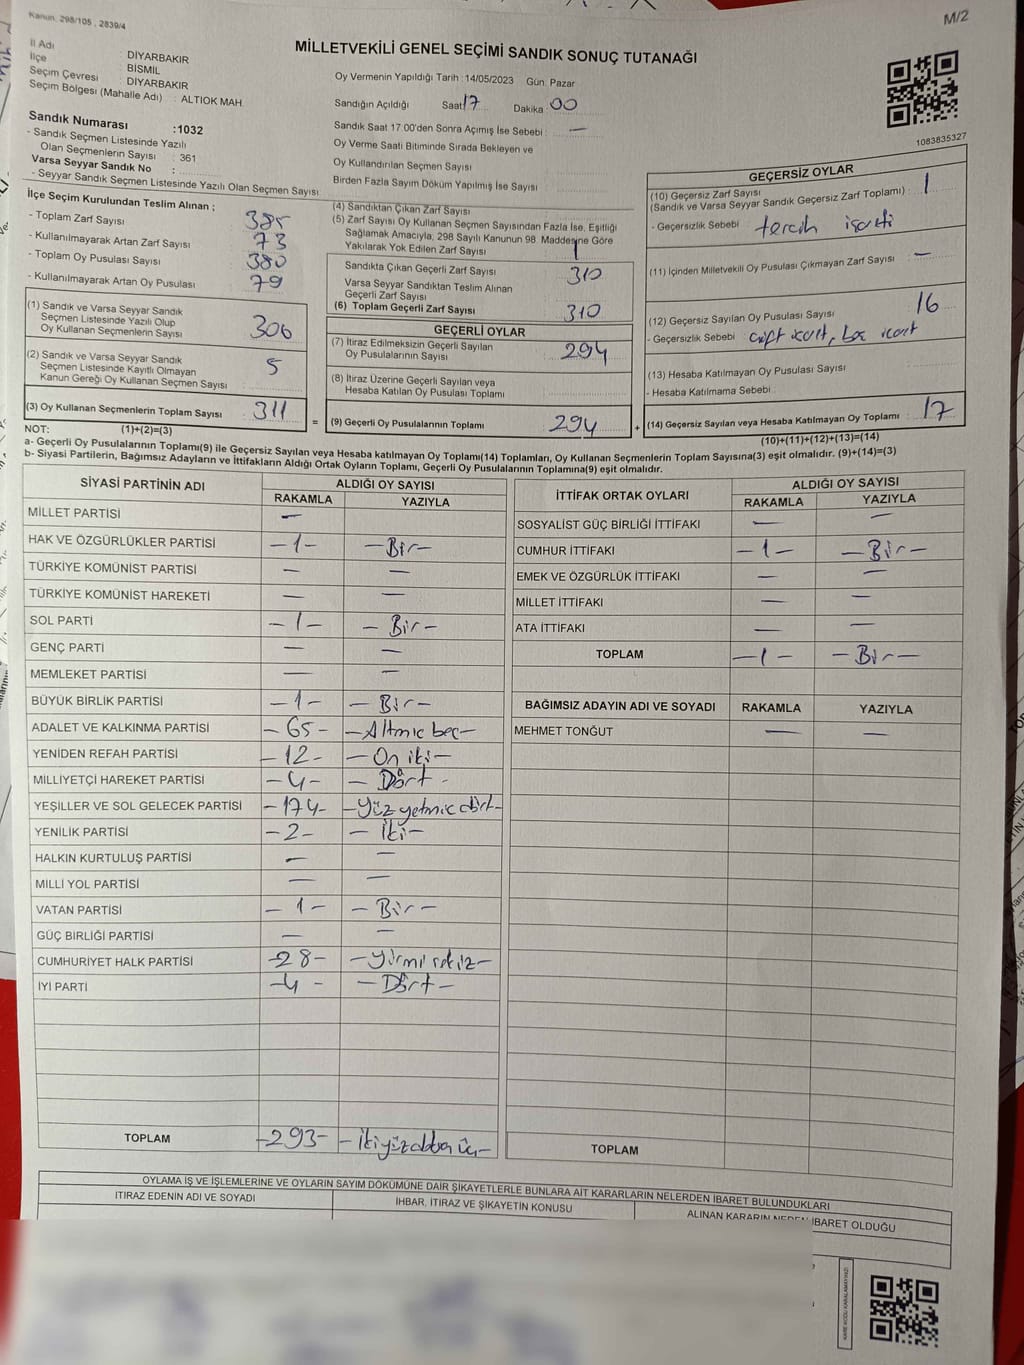 Kanun. 298/105 , 2839/4
M/2
MİLLETVEKİLİ GENEL SEÇİMİ SANDIK SONUÇ TUTANAĞI
İl Adı : DİYARBAKIR
İlçe : BİSMİL
Seçim Çevresi : DİYARBAKIR
Seçim Bölgesi (Mahalle Adı) : ALTIOK MAH.
Sandık Numarası :1032
- Sandık Seçmen Listesinde Yazılı
Olan Seçmenlerin Sayısı : 361
Varsa Seyyar Sandık No :
- Seyyar Sandık Seçmen Listesinde Yazılı Olan Seçmen Sayısı
Oy Vermenin Yapıldığı Tarih :14/05/2023 Gün: Pazar
Sandığın Açıldığı Saat 17 Dakika :00
Sandık Saat 17.00'den Sonra Açımış İse Sebebi : —
Oy Verme Saati Bitiminde Sırada Bekleyen ve
Oy Kullandırılan Seçmen Sayısı
Birden Fazla Sayım Döküm Yapılmış İse Sayısı
1083835327
İlçe Seçim Kurulundan Teslim Alınan ;
- Toplam Zarf Sayısı 385
- Kullanılmayarak Artan Zarf Sayısı 73
- Toplam Oy Pusulası Sayısı 380
- Kullanılmayarak Artan Oy Pusulası 79
(1) Sandık ve Varsa Seyyar Sandık
Seçmen Listesinde Yazılı Olup
Oy Kullanan Seçmenlerin Sayısı 306
(2) Sandık ve Varsa Seyyar Sandık
Seçmen Listesinde Kayıtlı Olmayan
Kanun Gereği Oy Kullanan Seçmen Sayısı 5
(3) Oy Kullanan Seçmenlerin Toplam Sayısı 311
(1)+(2)=(3)
(4) Sandıktan Çıkan Zarf Sayısı
(5) Zarf Sayısı Oy Kullanan Seçmen Sayısından Fazla İse, Eşitliği
Sağlamak Amacıyla, 298 Sayılı Kanunun 98. Maddesine Göre
Yakılarak Yok Edilen Zarf Sayısı 1
Sandıkta Çıkan Geçerli Zarf Sayısı 310
Varsa Seyyar Sandıktan Teslim Alınan
Geçerli Zarf Sayısı
(6) Toplam Geçerli Zarf Sayısı 310
GEÇERLİ OYLAR
(7) İtiraz Edilmeksizin Geçerli Sayılan
Oy Pusulalarının Sayısı 294
(8) İtiraz Üzerine Geçerli Sayılan veya
Hesaba Katılan Oy Pusulası Toplamı
= (9) Geçerli Oy Pusulalarının Toplamı 294 +
GEÇERSİZ OYLAR
(10) Geçersiz Zarf Sayısı
(Sandık ve Varsa Seyyar Sandık Geçersiz Zarf Toplamı) : 1
- Geçersizlik Sebebi tercih isareti
(11) İçinden Milletvekili Oy Pusulası Çıkmayan Zarf Sayısı : —
(12) Geçersiz Sayılan Oy Pusulası Sayısı 16
- Geçersizlik Sebebi
(13) Hesaba Katılmayan Oy Pusulası Sayısı
- Hesaba Katılmama Sebebi :
(14) Geçersiz Sayılan veya Hesaba Katılmayan Oy Toplamı : 17
(10)+(11)+(12)+(13)=(14)
NOT:
a- Geçerli Oy Pusulalarının Toplamı(9) ile Geçersiz Sayılan veya Hesaba katılmayan Oy Toplamı(14) Toplamları, Oy Kullanan Seçmenlerin Toplam Sayısına(3) eşit olmalıdır. (9)+(14)=(3)
b- Siyasi Partilerin, Bağımsız Adayların ve İttifakların Aldığı Ortak Oyların Toplamı, Geçerli Oy Pusulalarının Toplamına(9) eşit olmalıdır.
SİYASİ PARTİNİN ADI ALDIĞI OY SAYISI
RAKAMLA YAZIYLA
MİLLET PARTİSİ —
HAK VE ÖZGÜRLÜKLER PARTİSİ -1- -Bir-
TÜRKİYE KOMÜNİST PARTİSİ — —
TÜRKİYE KOMÜNİST HAREKETİ — —
SOL PARTİ -1- -Bir-
GENÇ PARTİ — —
MEMLEKET PARTİSİ — —
BÜYÜK BİRLİK PARTİSİ -1- -Bir-
ADALET VE KALKINMA PARTİSİ -65- -Altmış beş-
YENİDEN REFAH PARTİSİ -12- -On iki-
MİLLİYETÇİ HAREKET PARTİSİ -4- -Dört-
YEŞİLLER VE SOL GELECEK PARTİSİ -174- -Yüz yetmiş dört-
YENİLİK PARTİSİ -2- -İki-
HALKIN KURTULUŞ PARTİSİ — —
MİLLİ YOL PARTİSİ — —
VATAN PARTİSİ -1- -Bir-
GÜÇ BİRLİĞİ PARTİSİ — —
CUMHURİYET HALK PARTİSİ -28- -Yirmi sekiz-
İYİ PARTİ -4- -Dört-
TOPLAM -293-
İTTİFAK ORTAK OYLARI ALDIĞI OY SAYISI
RAKAMLA YAZIYLA
SOSYALİST GÜÇ BİRLİĞİ İTTİFAKI — —
CUMHUR İTTİFAKI -1- -Bir-
EMEK VE ÖZGÜRLÜK İTTİFAKI — —
MİLLET İTTİFAKI — —
ATA İTTİFAKI — —
TOPLAM -1- -Bir-
BAĞIMSIZ ADAYIN ADI VE SOYADI RAKAMLA YAZIYLA
MEHMET TONĞUT — —
TOPLAM
OYLAMA İŞ VE İŞLEMLERİNE VE OYLARIN SAYIM DÖKÜMÜNE DAİR ŞİKAYETLERLE BUNLARA AİT KARARLARIN NELERDEN İBARET BULUNDUKLARI
İTİRAZ EDENİN ADI VE SOYADI İHBAR, İTİRAZ VE ŞİKAYETİN KONUSU ALINAN KARARIN NEDEN İBARET OLDUĞU